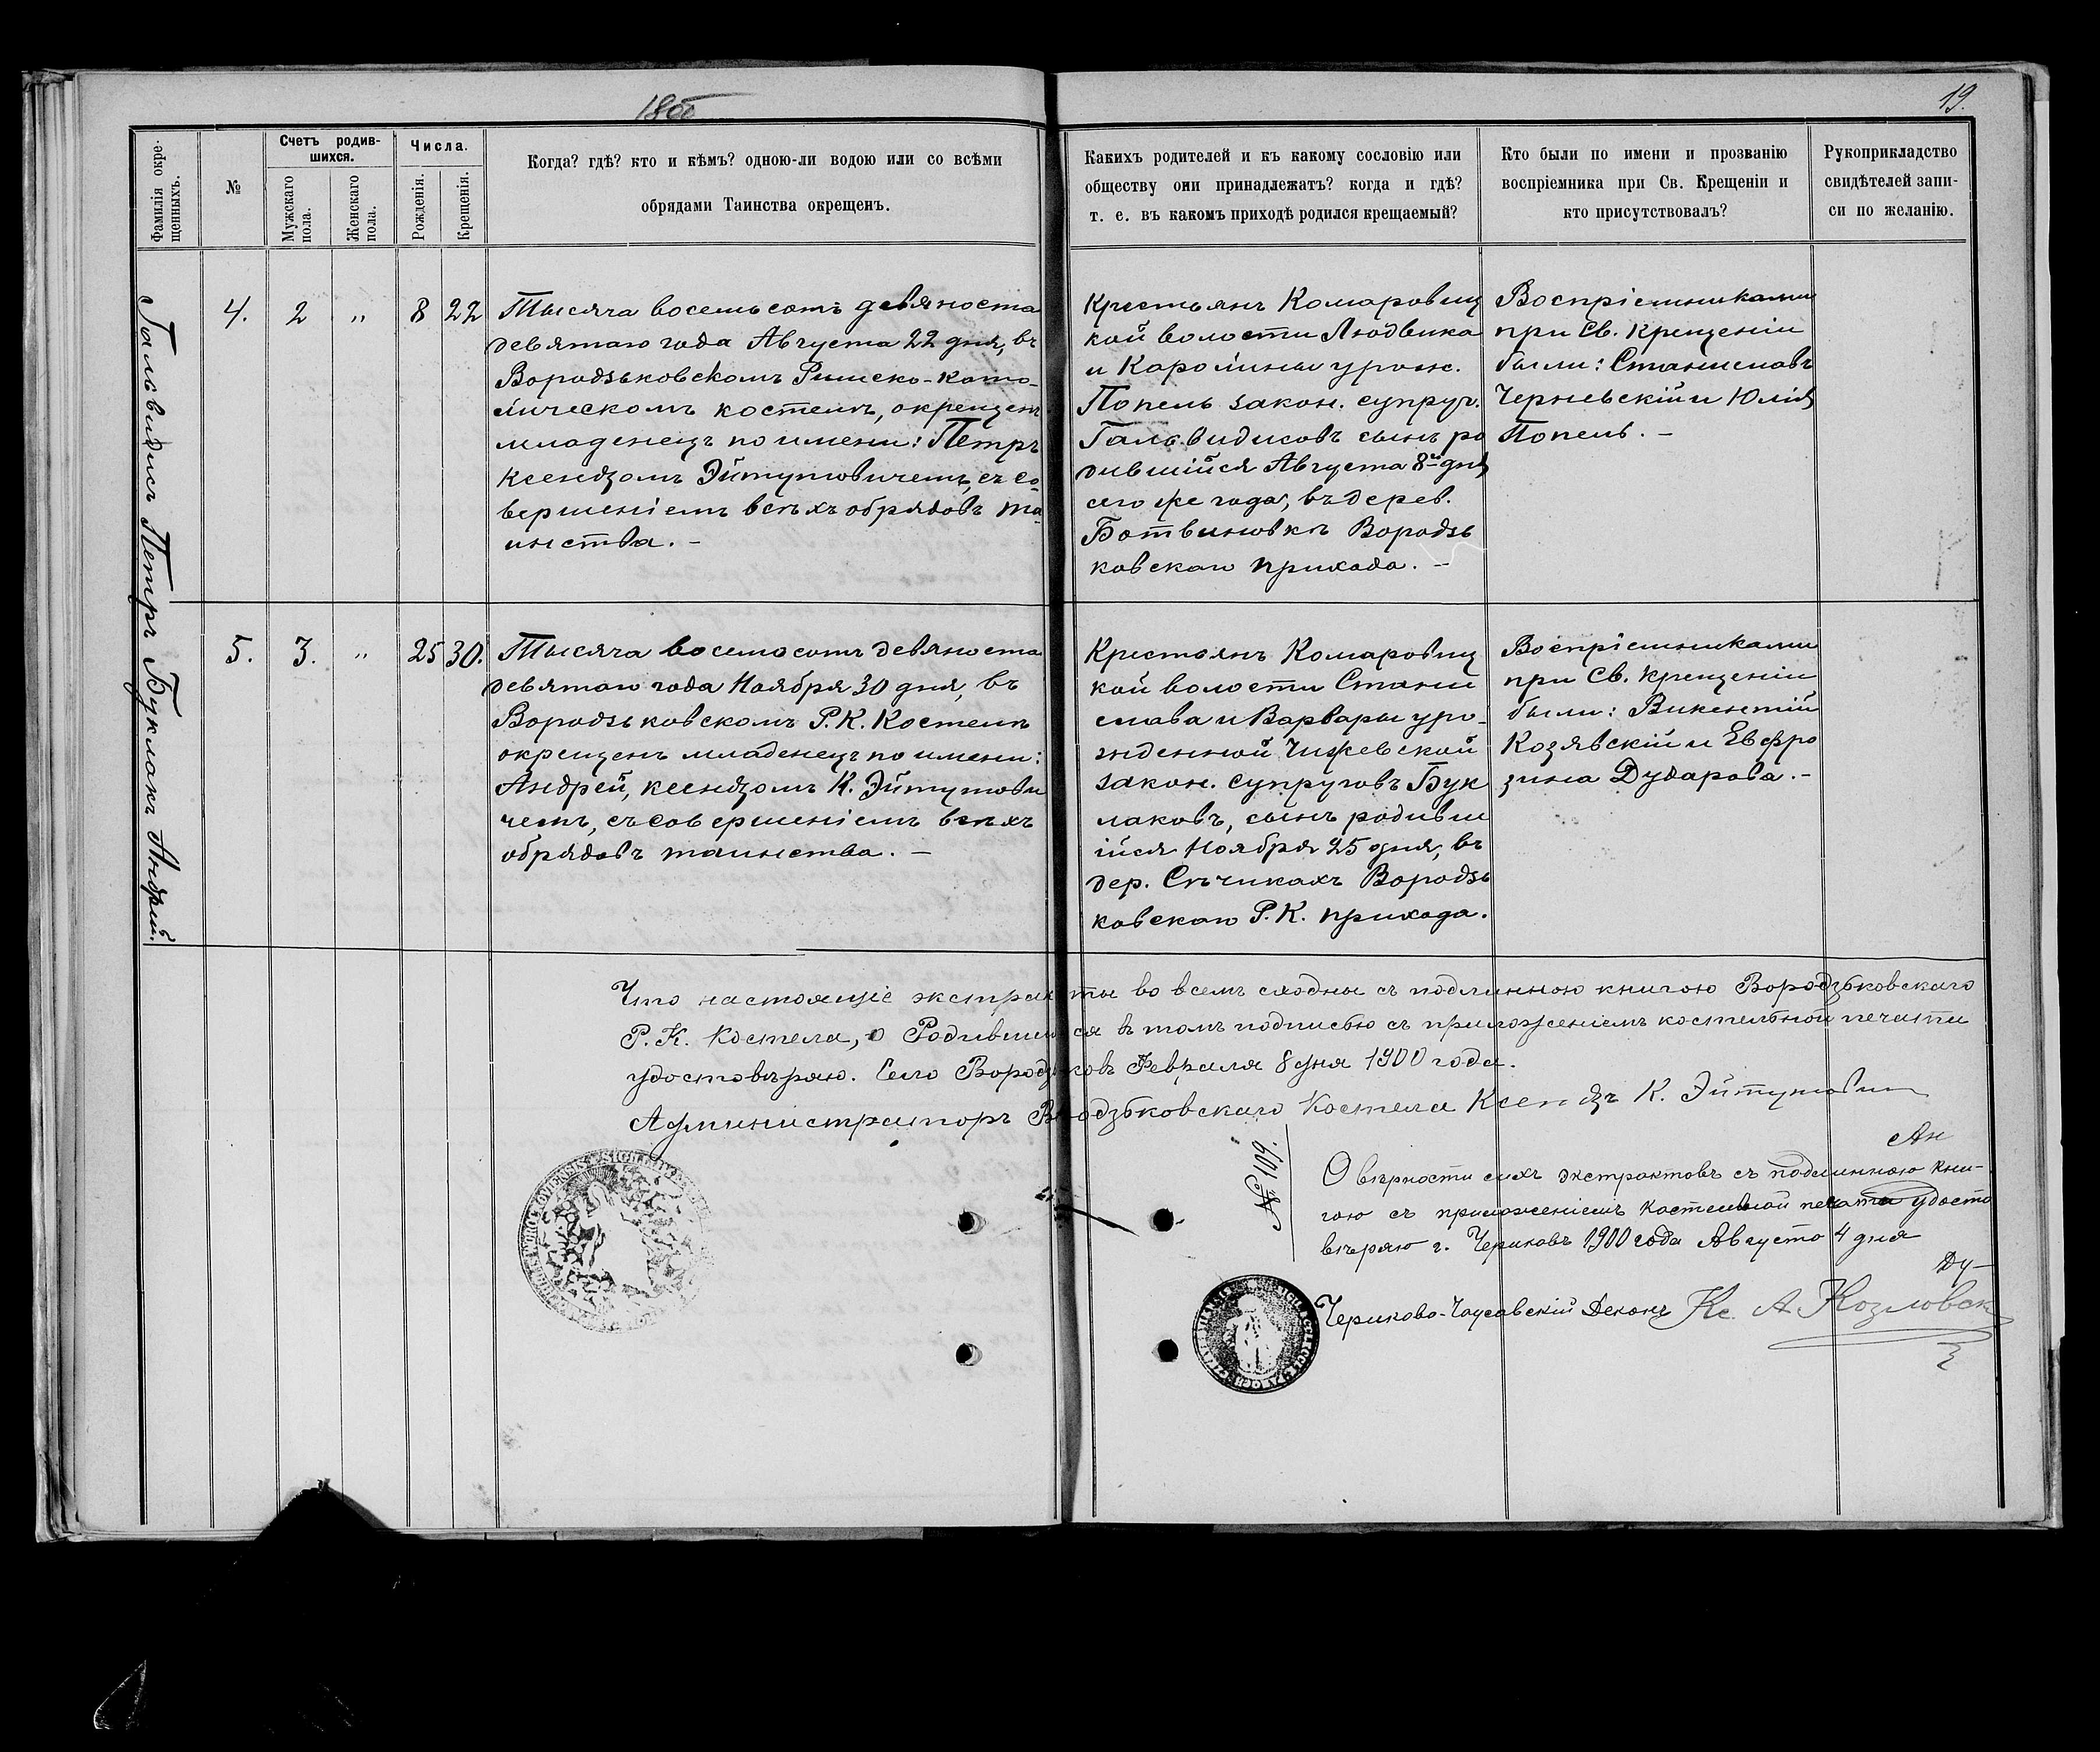 19.
Фамилія окре-
щенныхъ.
№
Счетъ родив-
шихся.
Мужскаго
пола.
Женскаго
пола.
Числа.
Рожденія.
Крещенія.
Когда? гдѣ? кто и кѣмъ? одною-ли водою или со всѣми
обрядами Таинства окрещенъ.
Какихъ родителей и къ какому сословію или
обществу они принадлежатъ? когда и гдѣ?
т. е. въ какомъ приходѣ родился крещаемый?
Кто были по имени и прозванію
воспріемника при Св. Крещеніи и
кто присутствовалъ?
Рукоприкладство
свидѣтелей запи-
си по желанію.
Гальвидисъ Петръ
4. 2 „ 8 22
Тысяча восемьсотъ девяноста
девятаго года Августа 22 дня, въ
Вородзьковскомъ Римско-Като-
лическомъ костелѣ, окрещенъ
младенецъ по имени: Петръ
ксендзомъ Эйтутовичемъ, съ со-
вершеніемъ всѣхъ обрядовъ та-
инства. –
Крестьянъ Комаровиц
кой волости Людвика
и Каролины урож.
Попель закон. супруг.
Гальвидисовъ сынъ ро
дившійся Августа 8го дня
сего же года, въ дерев.
Ботвиновкѣ Вородзь
ковскаго прихода. –
Воспріемниками
при Св. Крещеніи
были: Станиславъ
Черневскій и Юлія
Попель. –
Буклакъ Андрей.
5. 3. „ 25 30.
Тысяча восемьсотъ девяноста
девятаго года Ноября 30 дня, въ
Вородзьковскомъ Р. К. Костелѣ
окрещенъ младенецъ по имени:
Андрей, ксендзомъ К. Эйтутови
чемъ, съ совершеніемъ всѣхъ
обрядовъ таинства. –
Крестьянъ Комаровиц
кой волости Стани
слава и Варвары уро-
жденной Чижевской
закон. супруговъ Бук
лаковъ, сынъ родивш
ійся Ноября 25 дня, въ
дер. Сѣчикахъ Вородзь
ковскаго Р. К. прихода.
Воспріемниками
при Св. Крещеніи
были: Викентій
Козявскій и Евфро
зина Дударова. –
Что настоящіе экстракты во всемъ сходны съ подлинною книгою Вородзьковскаго
Р. К. Костела, о Родившихся въ томъ подписью съ приложеніемъ костельной печати
удостовѣряю. Село Вородзьковъ Февраля 8 дня 1900 года.
Администраторъ Вородзьковскаго Костела Ксендзъ К. Эйтутович
№ 109.
О вѣрности сихъ экстрактовъ съ подлинною кни-
гою съ приложеніемъ костельной печати удосто
вѣряю г. Чериковъ 1900 года Августа 4 дня
Чериково-Чаусавскій Деканъ Кс. А Козловск